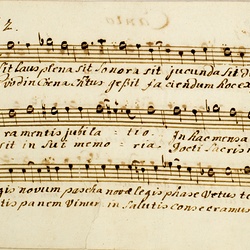 Canto
2.
Sit laus plena sit Sonora sit jucunda sit d
Vod in Cœna Xtus geßit faciendum hoc ex
ramentis jubila tio. In hac mensa
sit in sui memo ria. Docti Sacris
gis novum pascha novæ legis phase Vetus te
tis panem Vinum in salutis consecramus